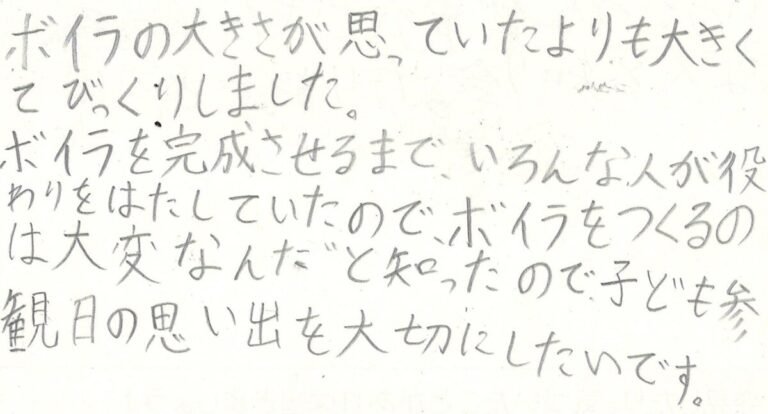 ボイラの大きさが思っていたよりも大きく
てびっくりしました。
ボイラを完成させるまで、いろんな人が役
わりをはたしていたので、ボイラをつくるの
は大変なんだと知ったので子ども参
観日の思い出を大切にしたいです。